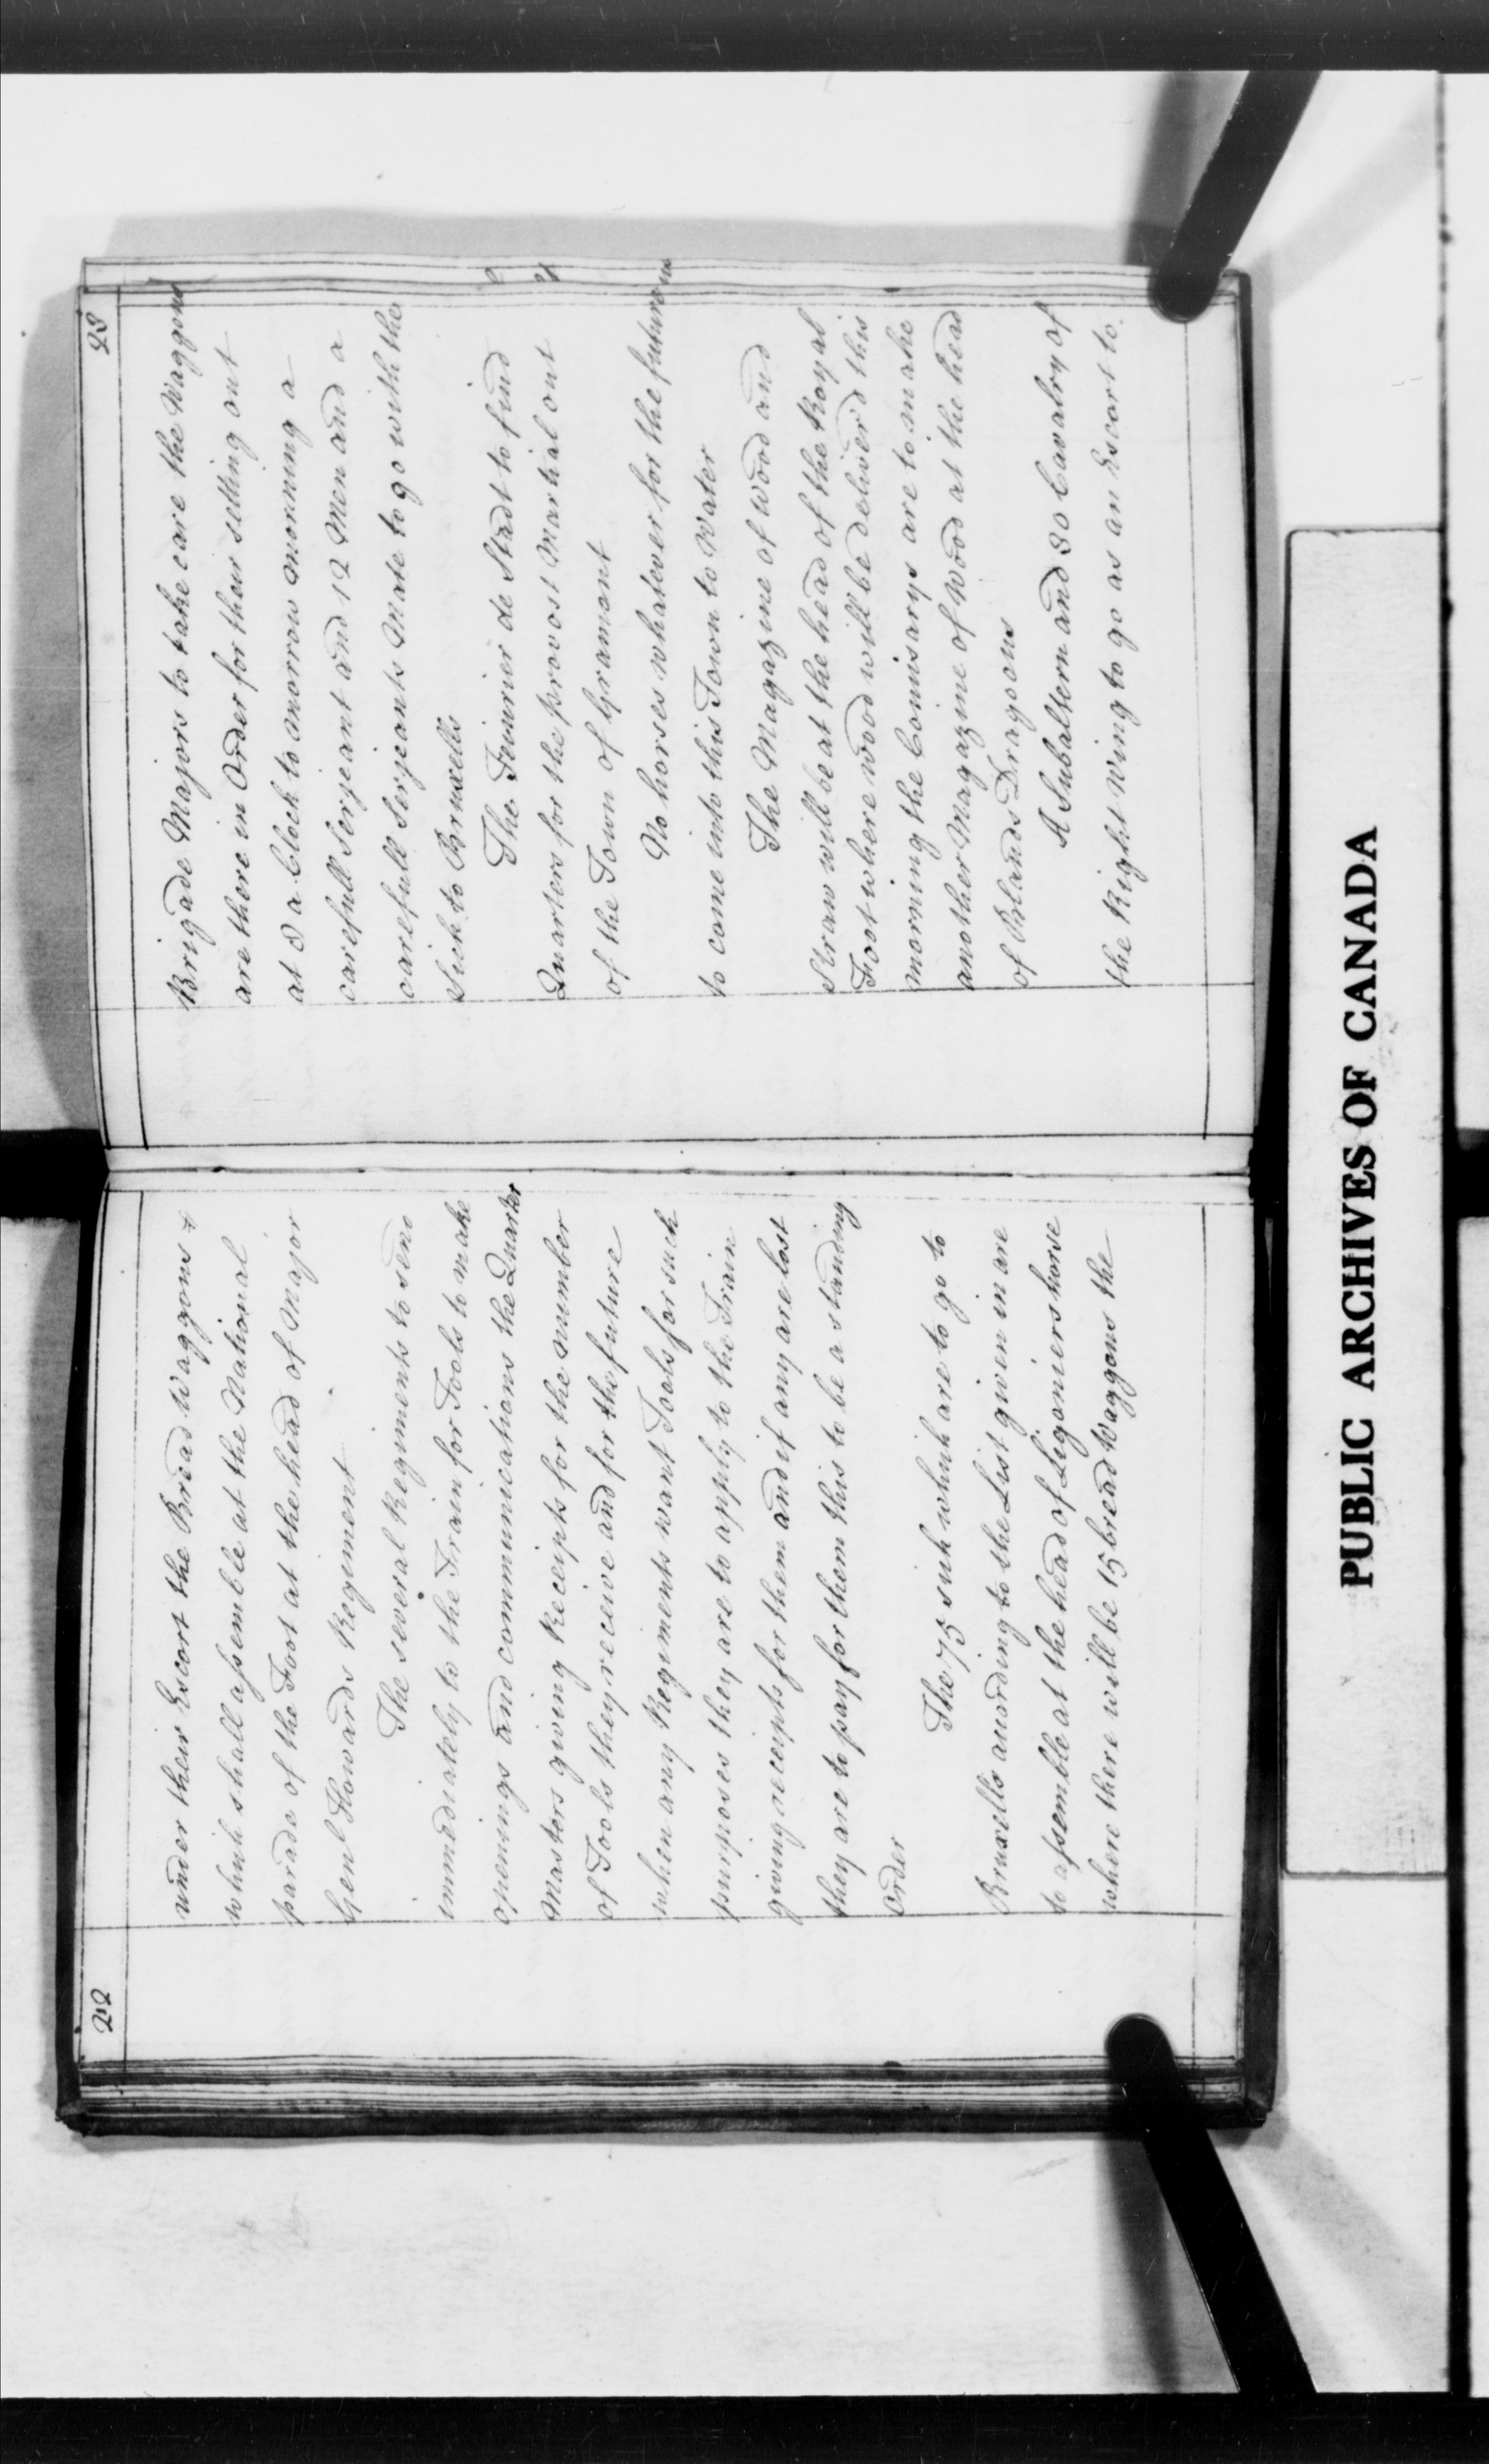 22
under their Escort the Bread Waggons &
which shall assemble at the National
parade of the Foot at the head of Major
Genl Howards Regiment
The several Regiments to send
immediately to the Train for Tools to make
openings and communications the Quarter
Masters giving Receipts for the number
of Tools they receive and for the future
when any Regiments want Tools for such
purposes they are to apply to the Train
giving receipts for them and if any are lost
they are to pay for them this to be a standing
Order
The 75 sick which are to go to
Bruxells according to the List given in are
to assemble at the head of Ligoniers horse
where there will be 15 bread Waggons the
23
Brigade Majors to take care the Waggons
are there in Order for their setting out
at 8 a Clock to morrow morning a
carefull Serjeant and 12 Men and a
carefull Serjeants Mate to go with the
Sick to Bruxells
The Fourier de Stadt to find
Quarters for the provost Martial out
of the Town of Gramont
No horses whatever for the future
to come into this Town to Water
The Magazine of Wood and
Straw will be at the head of the Royal
Foot where wood will be deliver'd this
morning the Comisarys are to make
another Magazine of Wood at the head
of Blands Dragoons
A Subaltern and 30 Cavalry of
the Right Wing to go as an Escort to
PUBLIC ARCHIVES OF CANADA